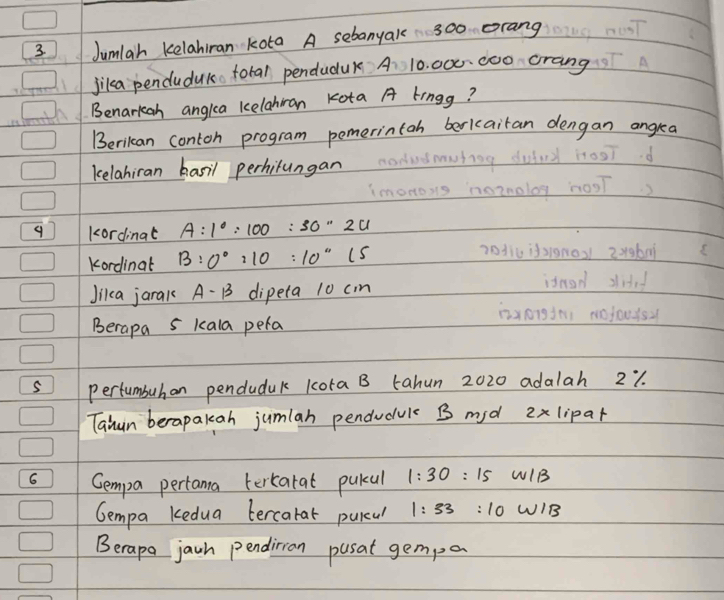 3 Jumlah kelahiran kota A sebanyak 300 orang
jika penduduk total penduduk A 10.000.000 orang
Benarkah angka kelahiran kota A tingg ?
Berikan contoh program pemerintah berkaitan dengan angka
kelahiran hasil perhitungan
4 kordinat A : 1° : 100 : 30" 2U
kordinat B : 0° : 10 : 10" LS
Jika jarak A - B dipeta 10 cm
Berapa skala peta
5 pertumbuhan penduduk kota B tahun 2020 adalah 2%
Tahun berapakah jumlah penduduk B mjd 2x lipat
6 Gempa pertama terkatat pukul 1:30 : 15 WIB
Gempa kedua tercatat pukul 1: 33 :10 WIB
Berapa jauh pendirran pusat gempa